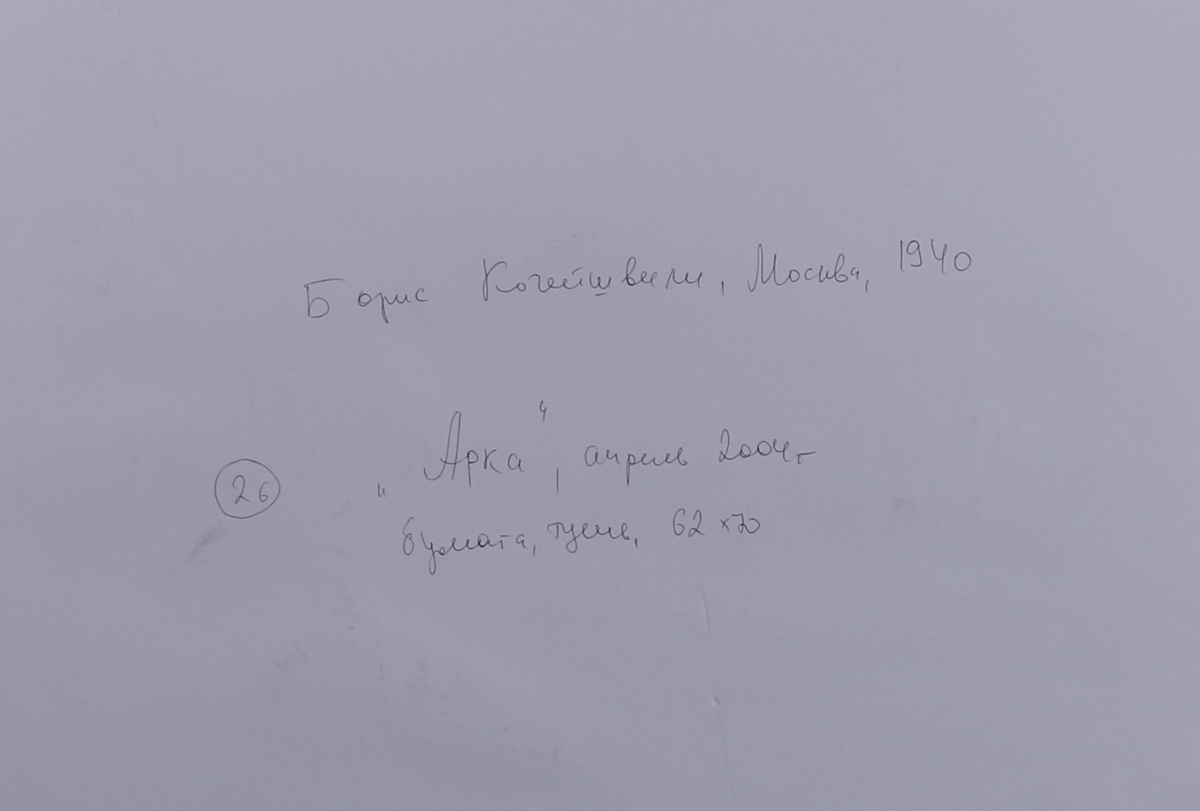 Борис Кочейшвили, Москва, 1940
„Арка“, апрель 2004г
26
бумага, тушь, 62 x 70